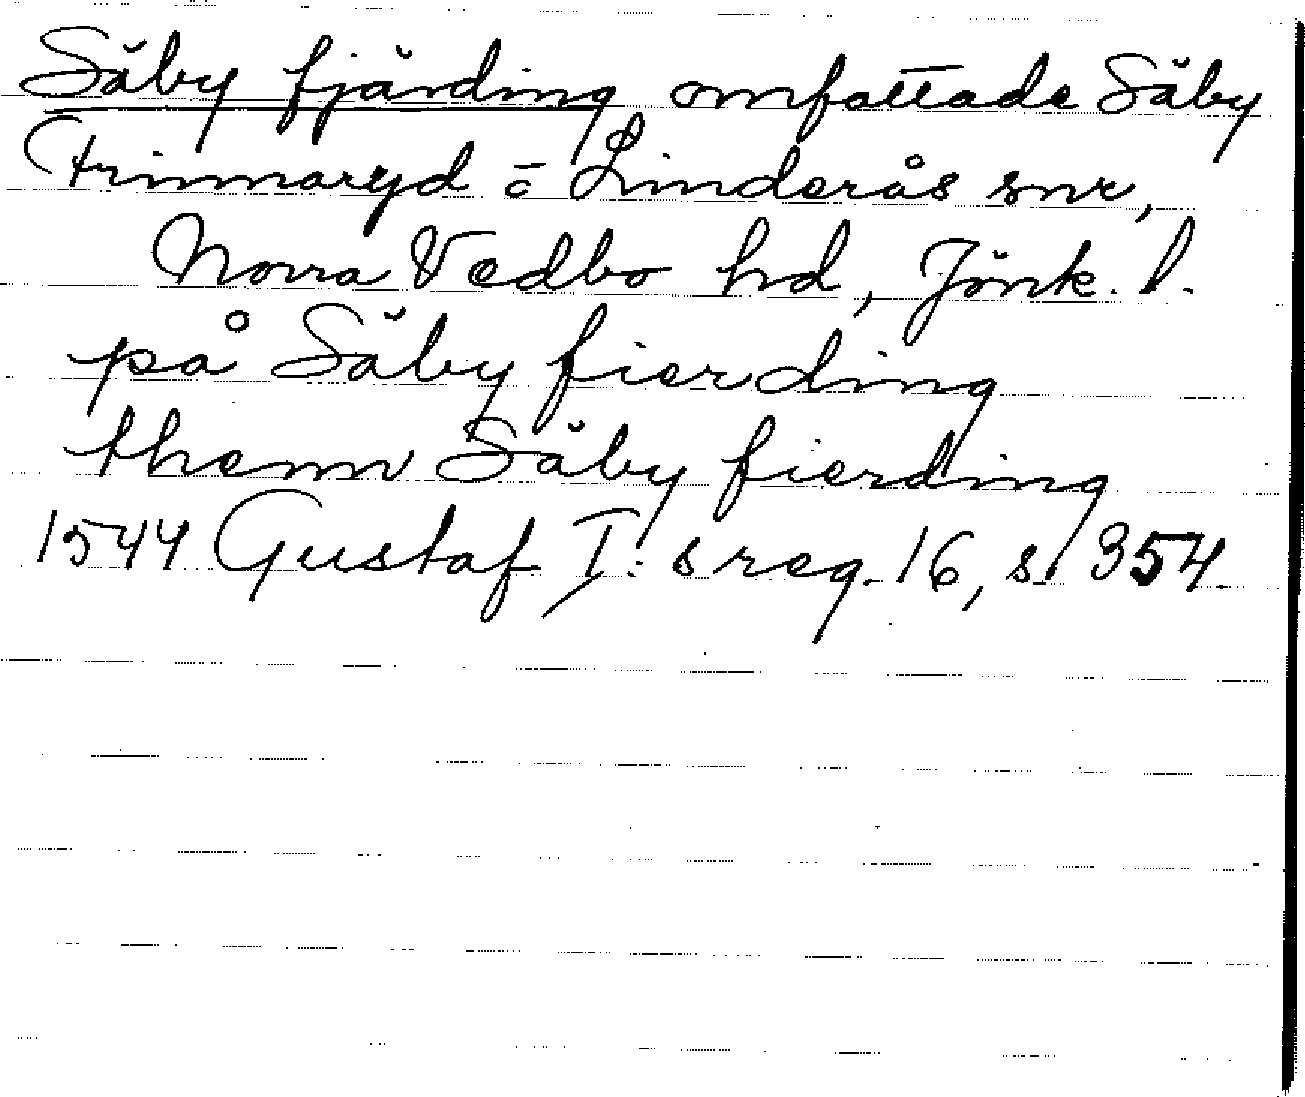 Säby fjärding omfattade Säby
(Frinnaryd o Linderås snr,
Norra Vedbo hd, Jönk. l.
på Säby fierding
thenn Säby fierding
1544 Gustaf I:s reg. 16, s. 354.